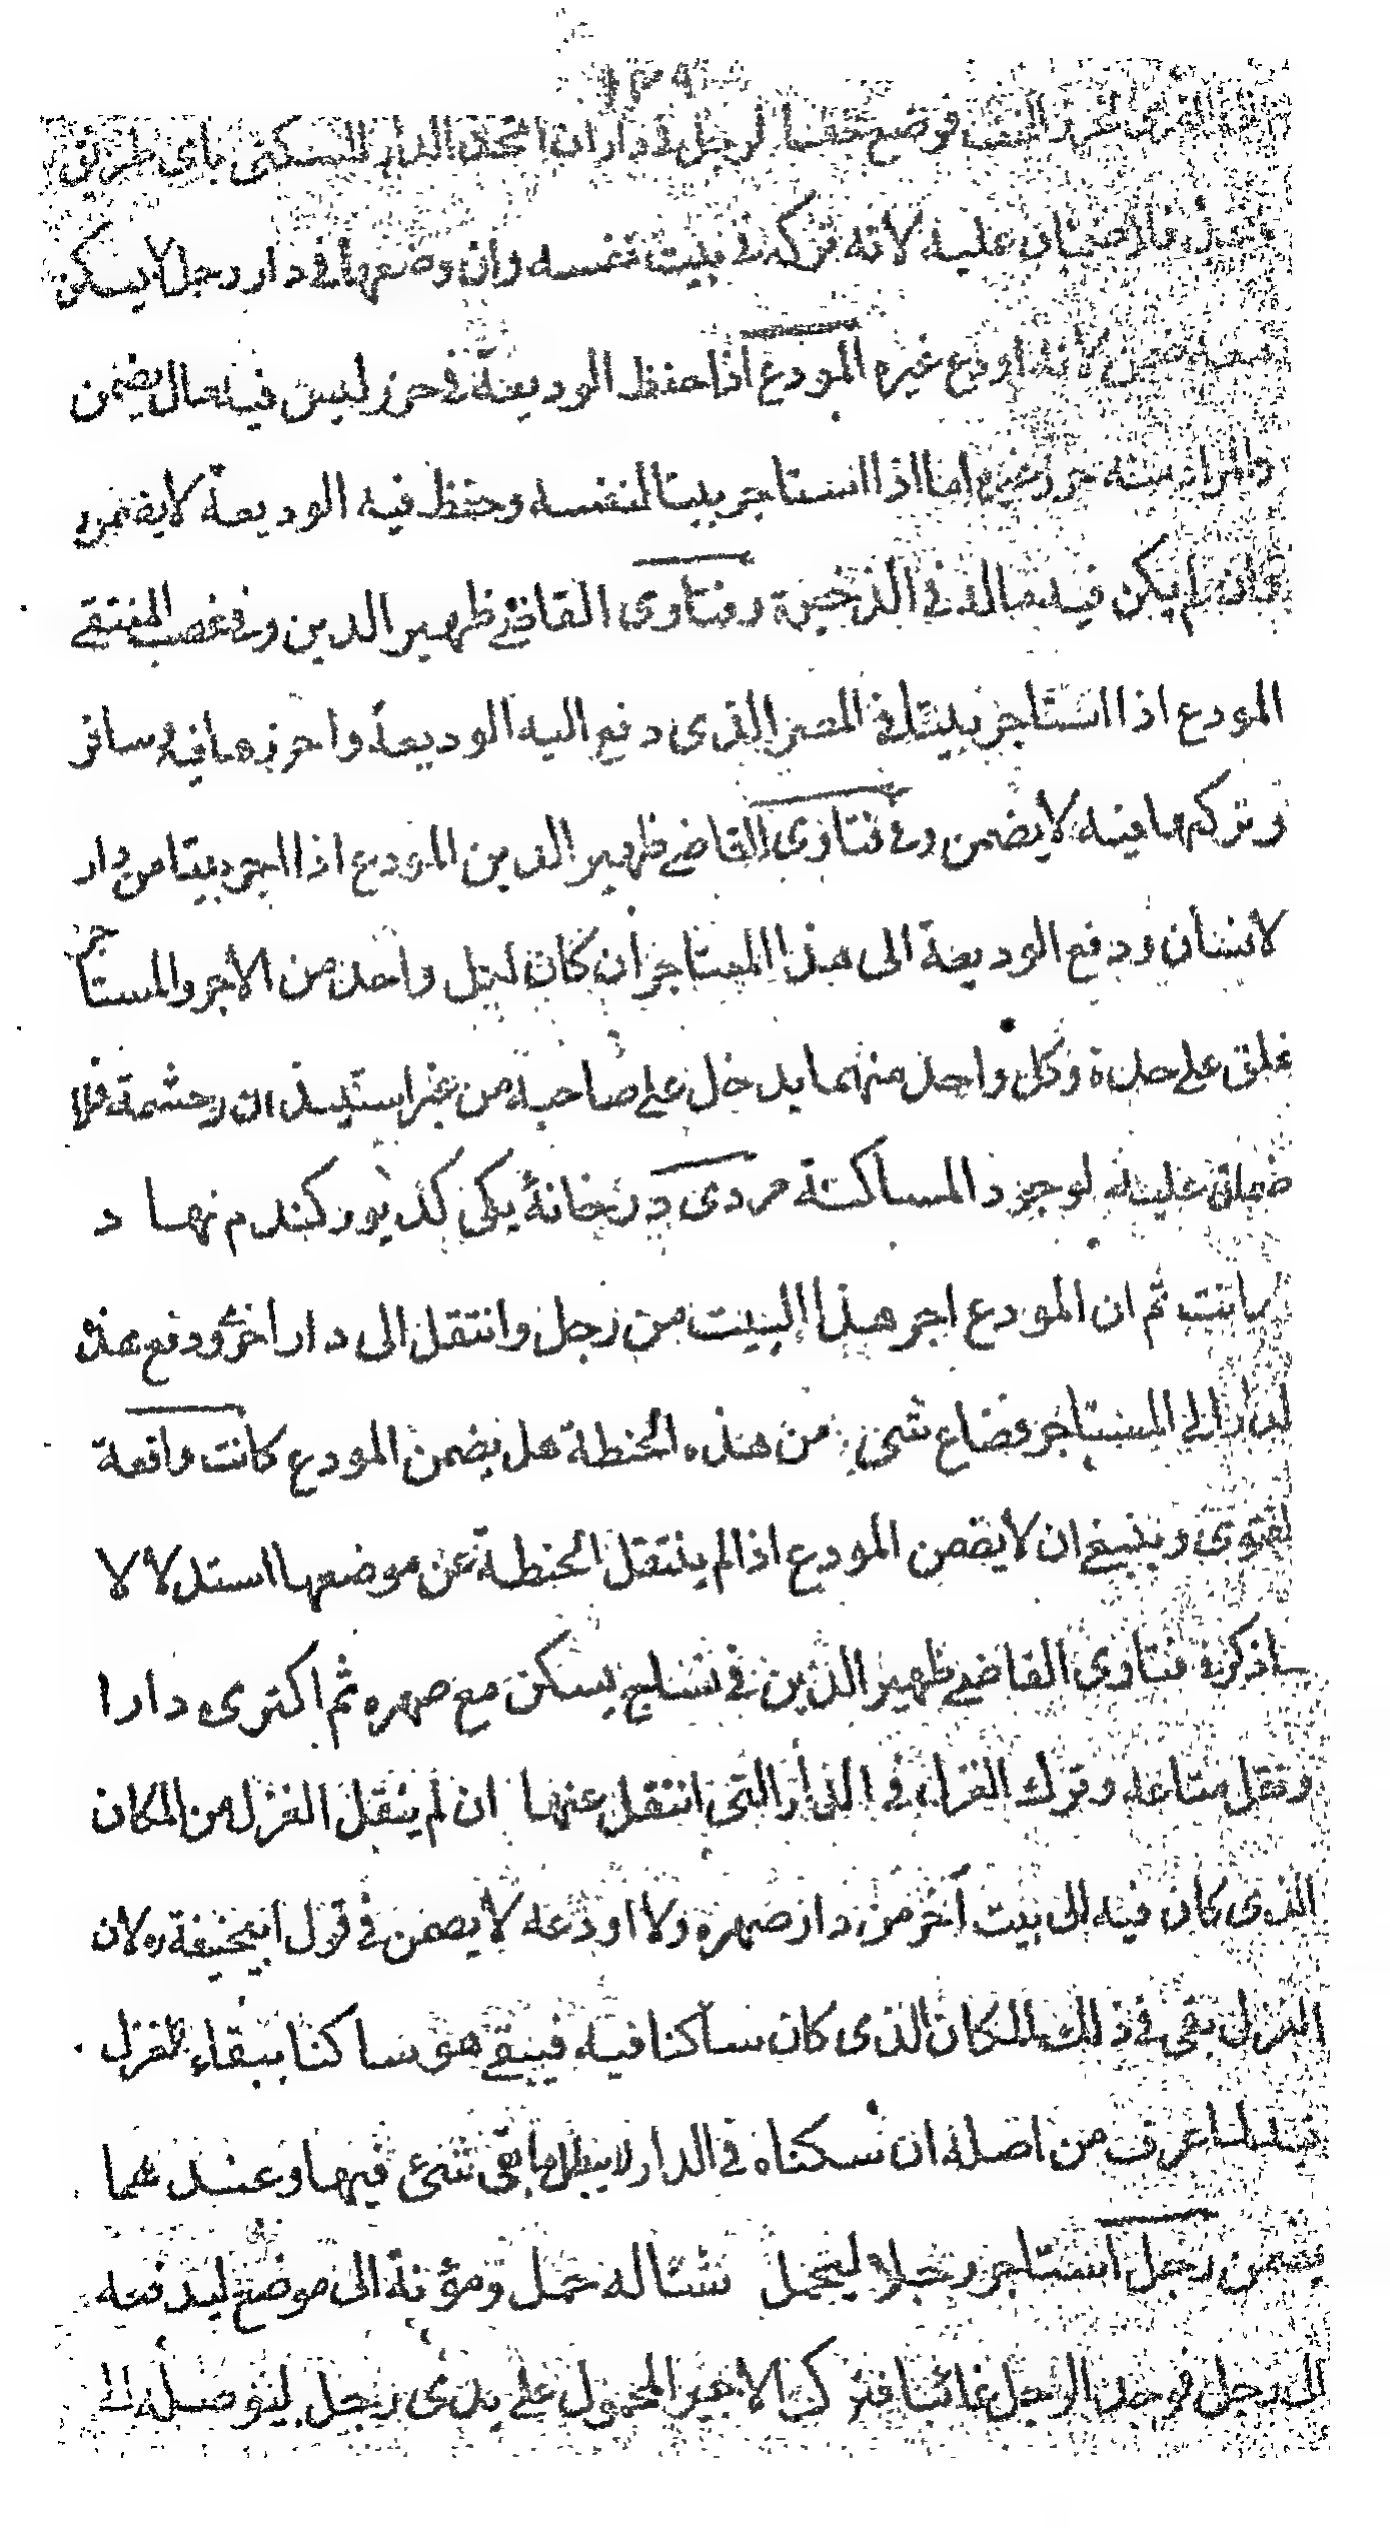 ١٣٩
فوضع خفنا لرجل في داره ان اتخذ الدار للسكنى باى طريق
فلا ضمان عليه لانه تركه في بيت نفسه وان وضعها في دار رجل لا يسكن
لانه اودع غيره المودع اذا حفظ الوديعة في حرز ليس فيه مال يضمن
والمراد منه حرز غيره اما اذا استاجر بيتا لنفسه وحفظ فيه الوديعة لا يضمن
وان لم يكن فيه مال له في الذخيرة وفتاوى القاضي ظهير الدين وفي غصب المنتقى
المودع اذا استاجر بيتا في المصر الذى دفع اليه الوديعة واحرزها فيه وسافر
وتركها فيه لا يضمن وفي فتاوى القاضي ظهير الدين المودع اذا اجر بيتا من دار
لانسان ودفع الوديعة الى هذا المستاجر ان كان لكل واحد من الاجر والمستاجر
غلق على حدة وكل واحد منهما يدخل على صاحبه من غير استيذان وحشمة فلا
ضمان عليه لوجود المساكنة مردى در خانهٔ يكى كذيور كندم نهاد
بامانت ثم ان المودع اجر هذا البيت من رجل وانتقل الى دار اخرى ودفع هذه
الدار الى المستاجر وضاع شئ من هذه الحنطة هل يضمن المودع كانت واقعة
الفتوى وينبغي ان لا يضمن المودع اذا لم ينتقل الحنطة عن موضعها استدلالا
بما ذكر في فتاوى القاضي ظهير الدين في نساج يسكن مع صهره ثم اكترى دارا
ونقل متاعه وترك الغزل في الدار التى انتقل عنها ان لم ينقل الغزل من المكان
الذى كان فيه الى بيت آخر من دار صهره ولا اودعه لا يضمن في قول ابيحنيفة ره لان
الغزل بقى في ذلك المكان الذى كان ساكنا فيه فيبقى هو ساكنا ببقاء الغزل
فيه لما عرف من اصله ان سكناه في الدار لا يبطل ما بقى شئ فيها وعندهما
يضمن رجل استاجر رجلا ليحمل شيئا له حمل ومؤنة الى موضع ليدفعه
الى رجل فوجد الرجل غائبا فترك الاجير المحمول على يدى رجل ليوصله الى